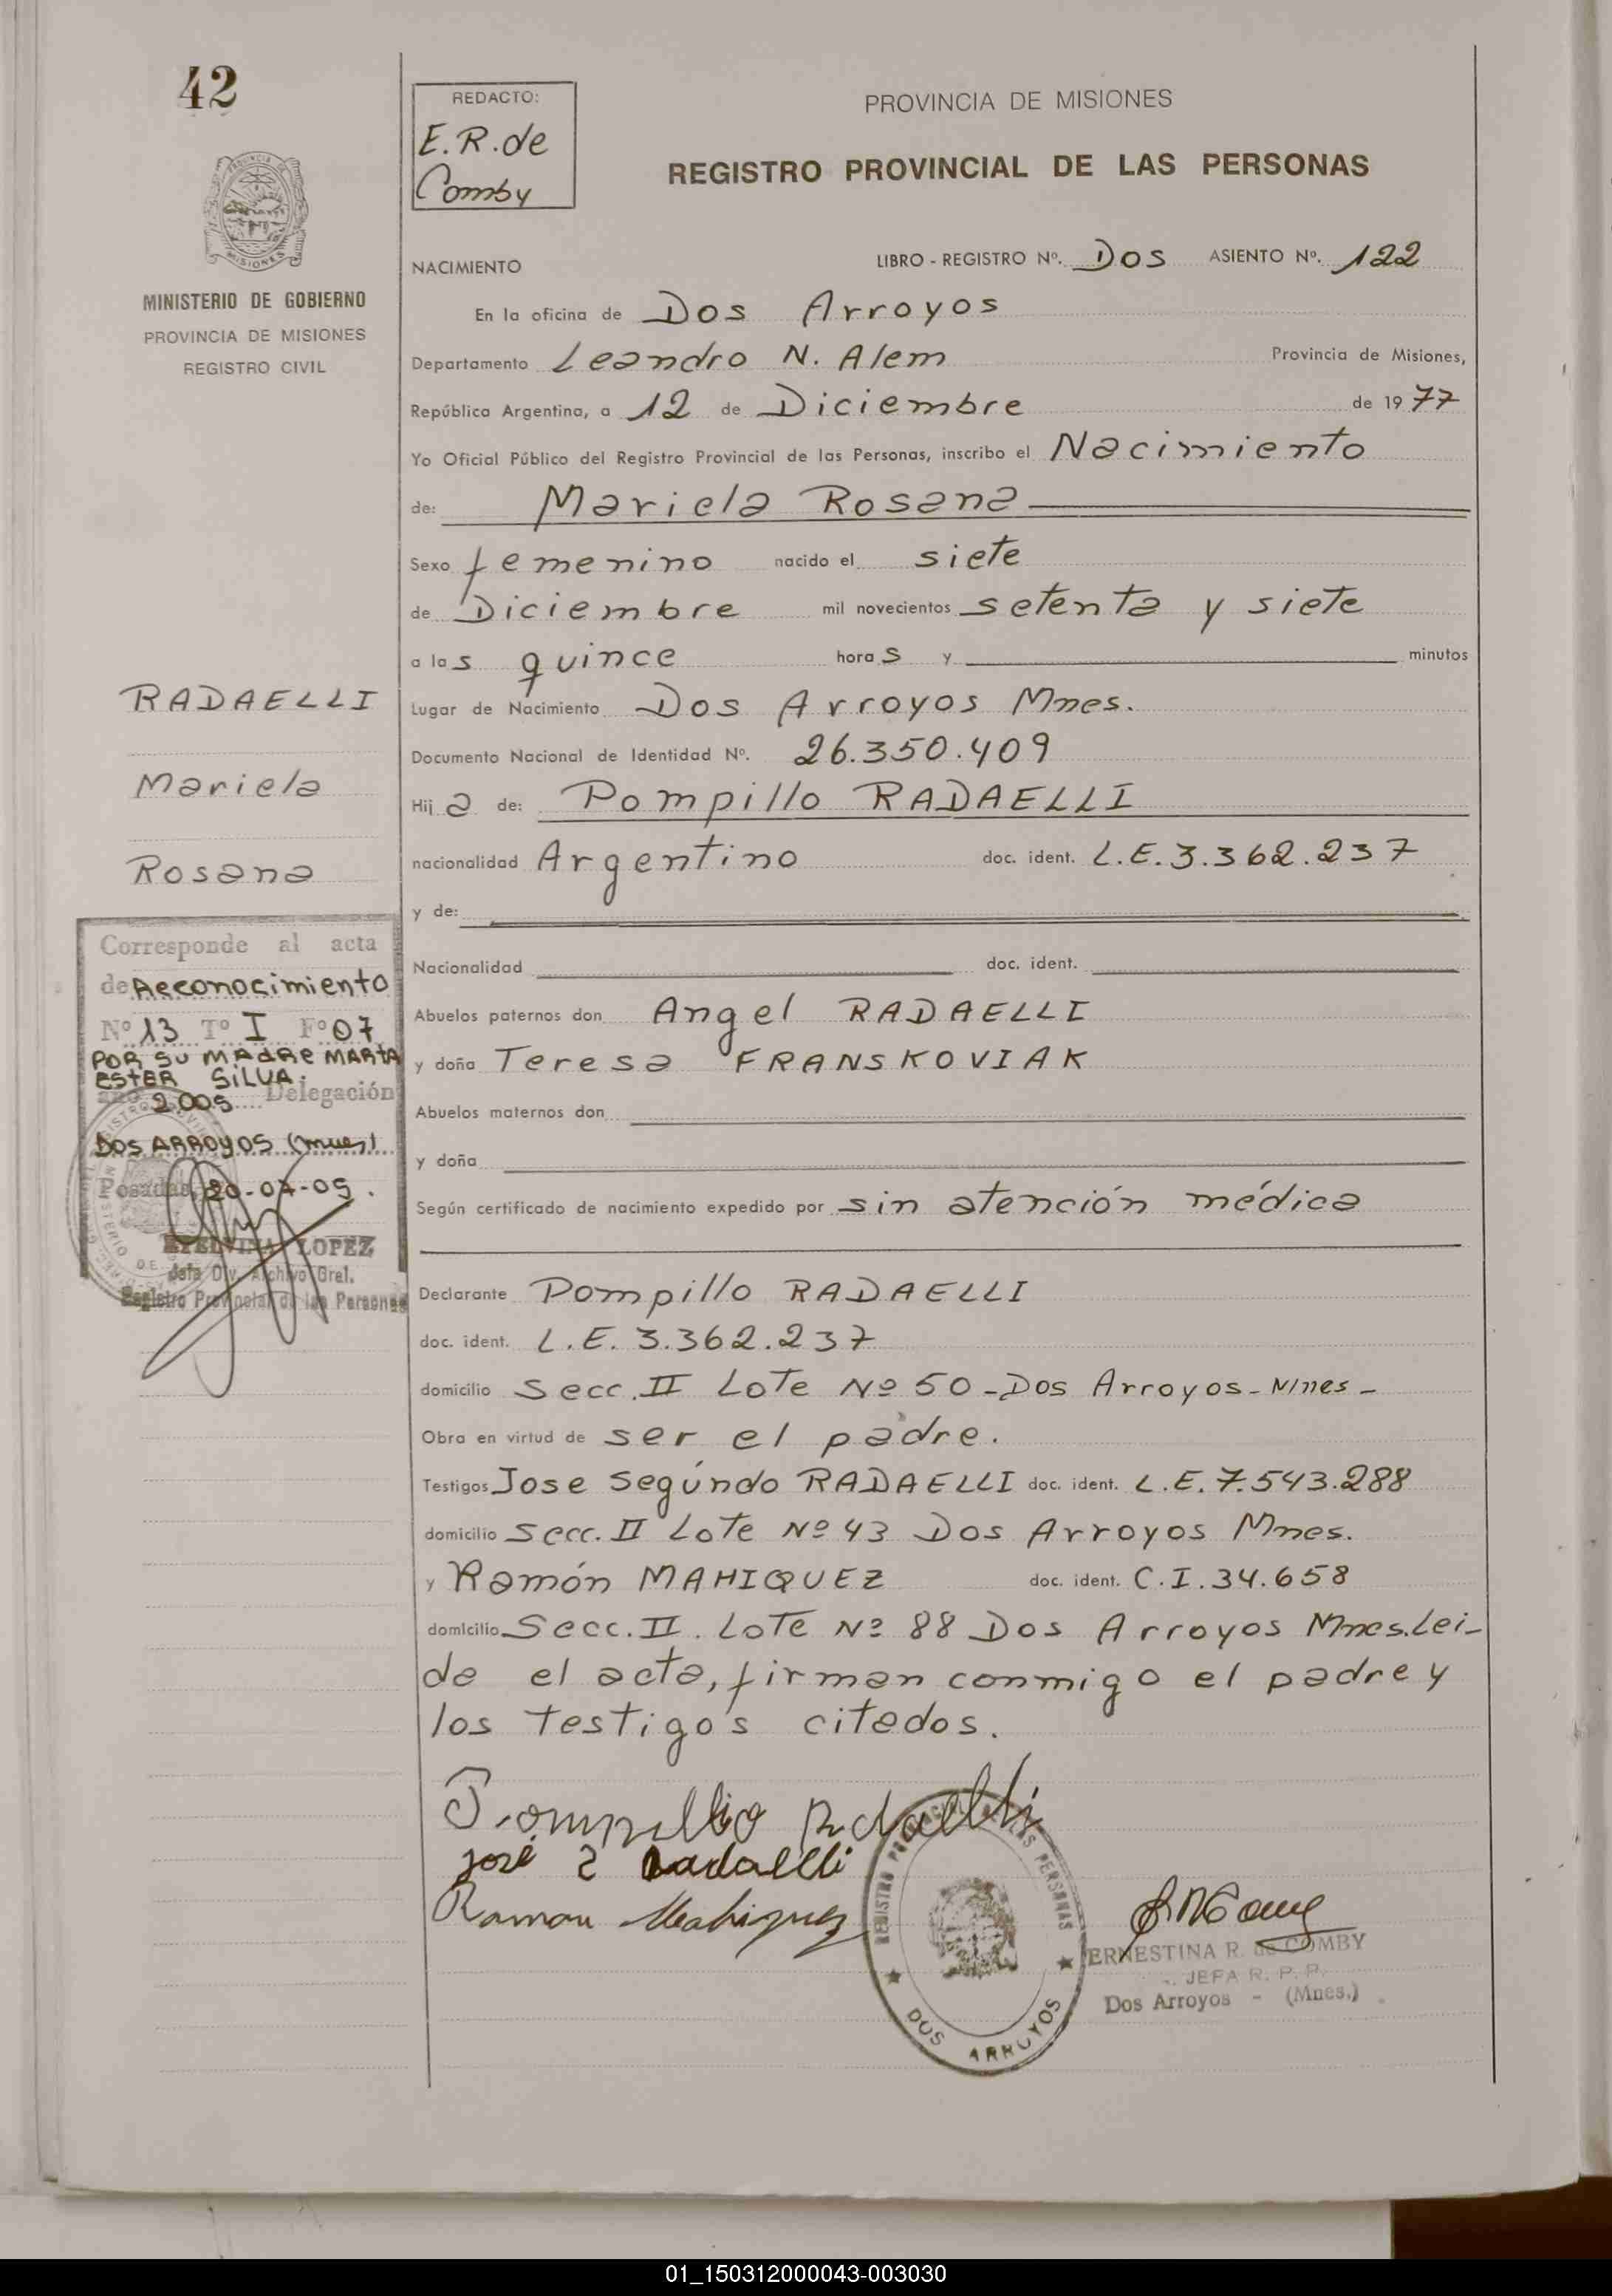 42
MINISTERIO DE GOBIERNO
PROVINCIA DE MISIONES
REGISTRO CIVIL
REDACTO:
E.R. de
Comby
PROVINCIA DE MISIONES
REGISTRO PROVINCIAL DE LAS PERSONAS
NACIMIENTO
LIBRO - REGISTRO Nº. Dos ASIENTO Nº. 122
En la oficina de Dos Arroyos
Departamento Leandro N. Alem Provincia de Misiones,
República Argentina, a 12 de Diciembre de 1977
Yo Oficial Público del Registro Provincial de las Personas, inscribo el Nacimiento
de: Mariela Rosana
Sexo femenino nacido el siete
de Diciembre mil novecientos setenta y siete
a las quince horas y minutos
Lugar de Nacimiento Dos Arroyos Mnes.
Documento Nacional de Identidad Nº. 26.350.409
Hija de: Pompillo RADAELLI
nacionalidad Argentino doc. ident. L.E. 3.362.237
y de:
Nacionalidad doc. ident.
Abuelos paternos don Angel RADAELLI
y doña Teresa FRANSKOVIAK
Abuelos maternos don
y doña
Según certificado de nacimiento expedido por sin atención médica
Declarante Pompillo RADAELLI
doc. ident. L.E. 3.362.237
domicilio Secc. II Lote Nº 50 - Dos Arroyos - Mnes -
Obra en virtud de ser el padre.
Testigos Jose Segúndo RADAELLI doc. ident. L.E. 7.543.288
domicilio Secc. II Lote Nº 43 Dos Arroyos Mnes.
y Ramón MAHIQUEZ doc. ident. C.I. 34.658
domicilio Secc. II. Lote Nº 88 Dos Arroyos Mnes. Lei-
da el acta, firman conmigo el padre y
los testigos citados.
RADAELLI
Mariela
Rosana
Corresponde al acta
de Reconocimiento
Nº 13 Tº I Fº 07
POR SU MADRE MARTA
ESTER SILVA.
año 2.005 Delegación
DOS ARROYOS (mnes)
Posadas, 20-07-05.
LOPEZ
Jefa Div. Archivo Gral.
Registro Provincial de las Personas
Pompillio Radaelli
José S Radaelli
Ramon Mahiquez
REGISTRO PROVINCIAL DE LAS PERSONAS
DOS ARROYOS
ERNESTINA R. de COMBY
JEFA R. P. P.
Dos Arroyos - (Mnes.)
01_150312000043-003030